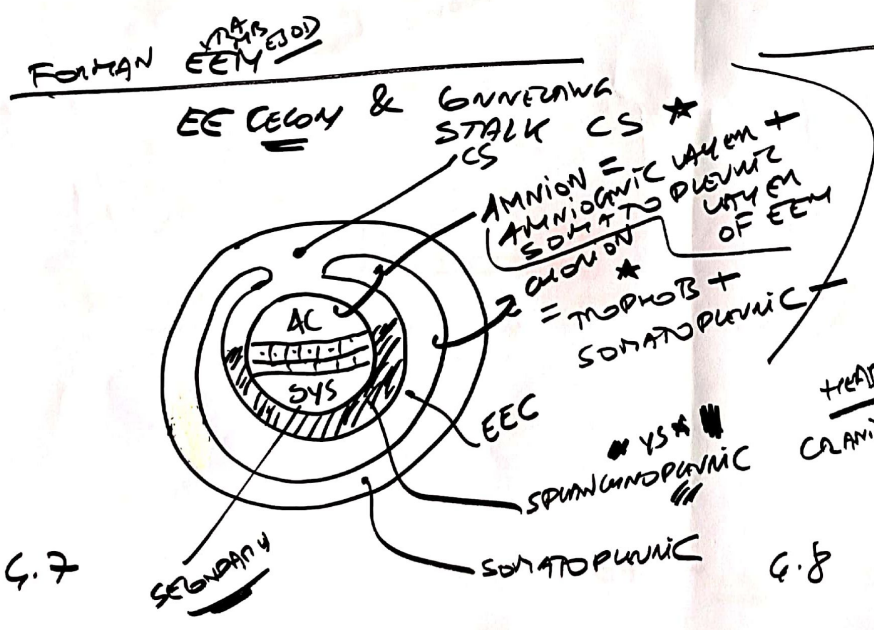 EEM
EE CELOM &
STALK CS
CS
AMNION =
AMNIOGNIC LAYER +
SOMATOPLEURIC
LAYER
OF EEM
CHORION
= TROPHOB +
SOMATOPLEURIC
AC
SYS
EEC
YS
SPLANCHNOPLEURIC
SOMATOPLEURIC
SECONDARY
HEAD
CRANI